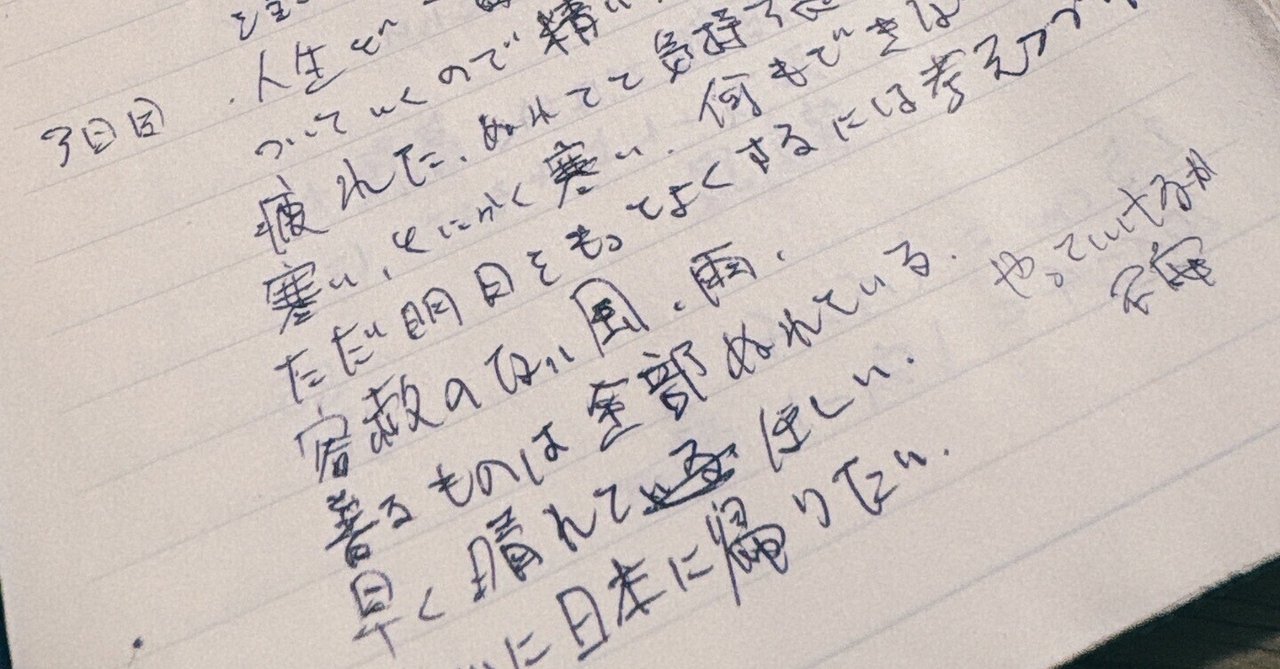 人生で
3日目
ついていくので精い
疲れた、ぬれてて気持ち
寒い、とにかく寒い、何もできな
ただ明日をもってよくするには考え
容赦のない風、雨、
着るものは全部ぬれている。
やっていけるか
不安
早く晴れてほしい。
に日本に帰りたい。